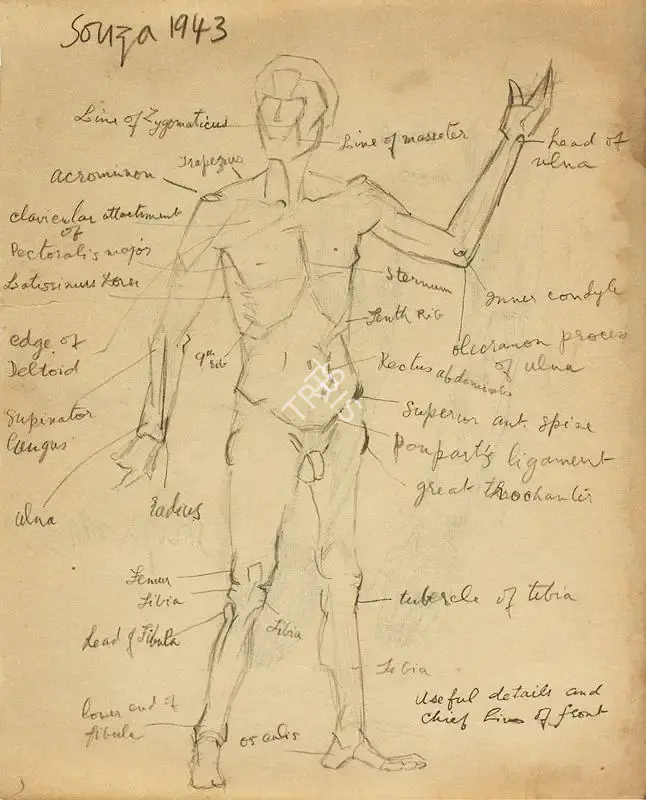 Souza 1943
Line of Zygomaticus
Line of masseter
Trapezius
head of
ulna
acrominon
clavicular attachment
of
Pectoralis major
Latissimus Dorsi
Sternum
inner condyle
Tenth Rib
olecranon process
of ulna
edge of
Deltoid
9th
rib
Rectus abdominis
Superior ant. spine
Supinator
Longus
Pouparts ligament
great throchanter
ulna
Radius
Femur
Tibia
tubercle of tibia
head of Fibula
Tibia
Tibia
Useful details and
chief lines of front
lower end of
fibula
os calis
TRIBIS